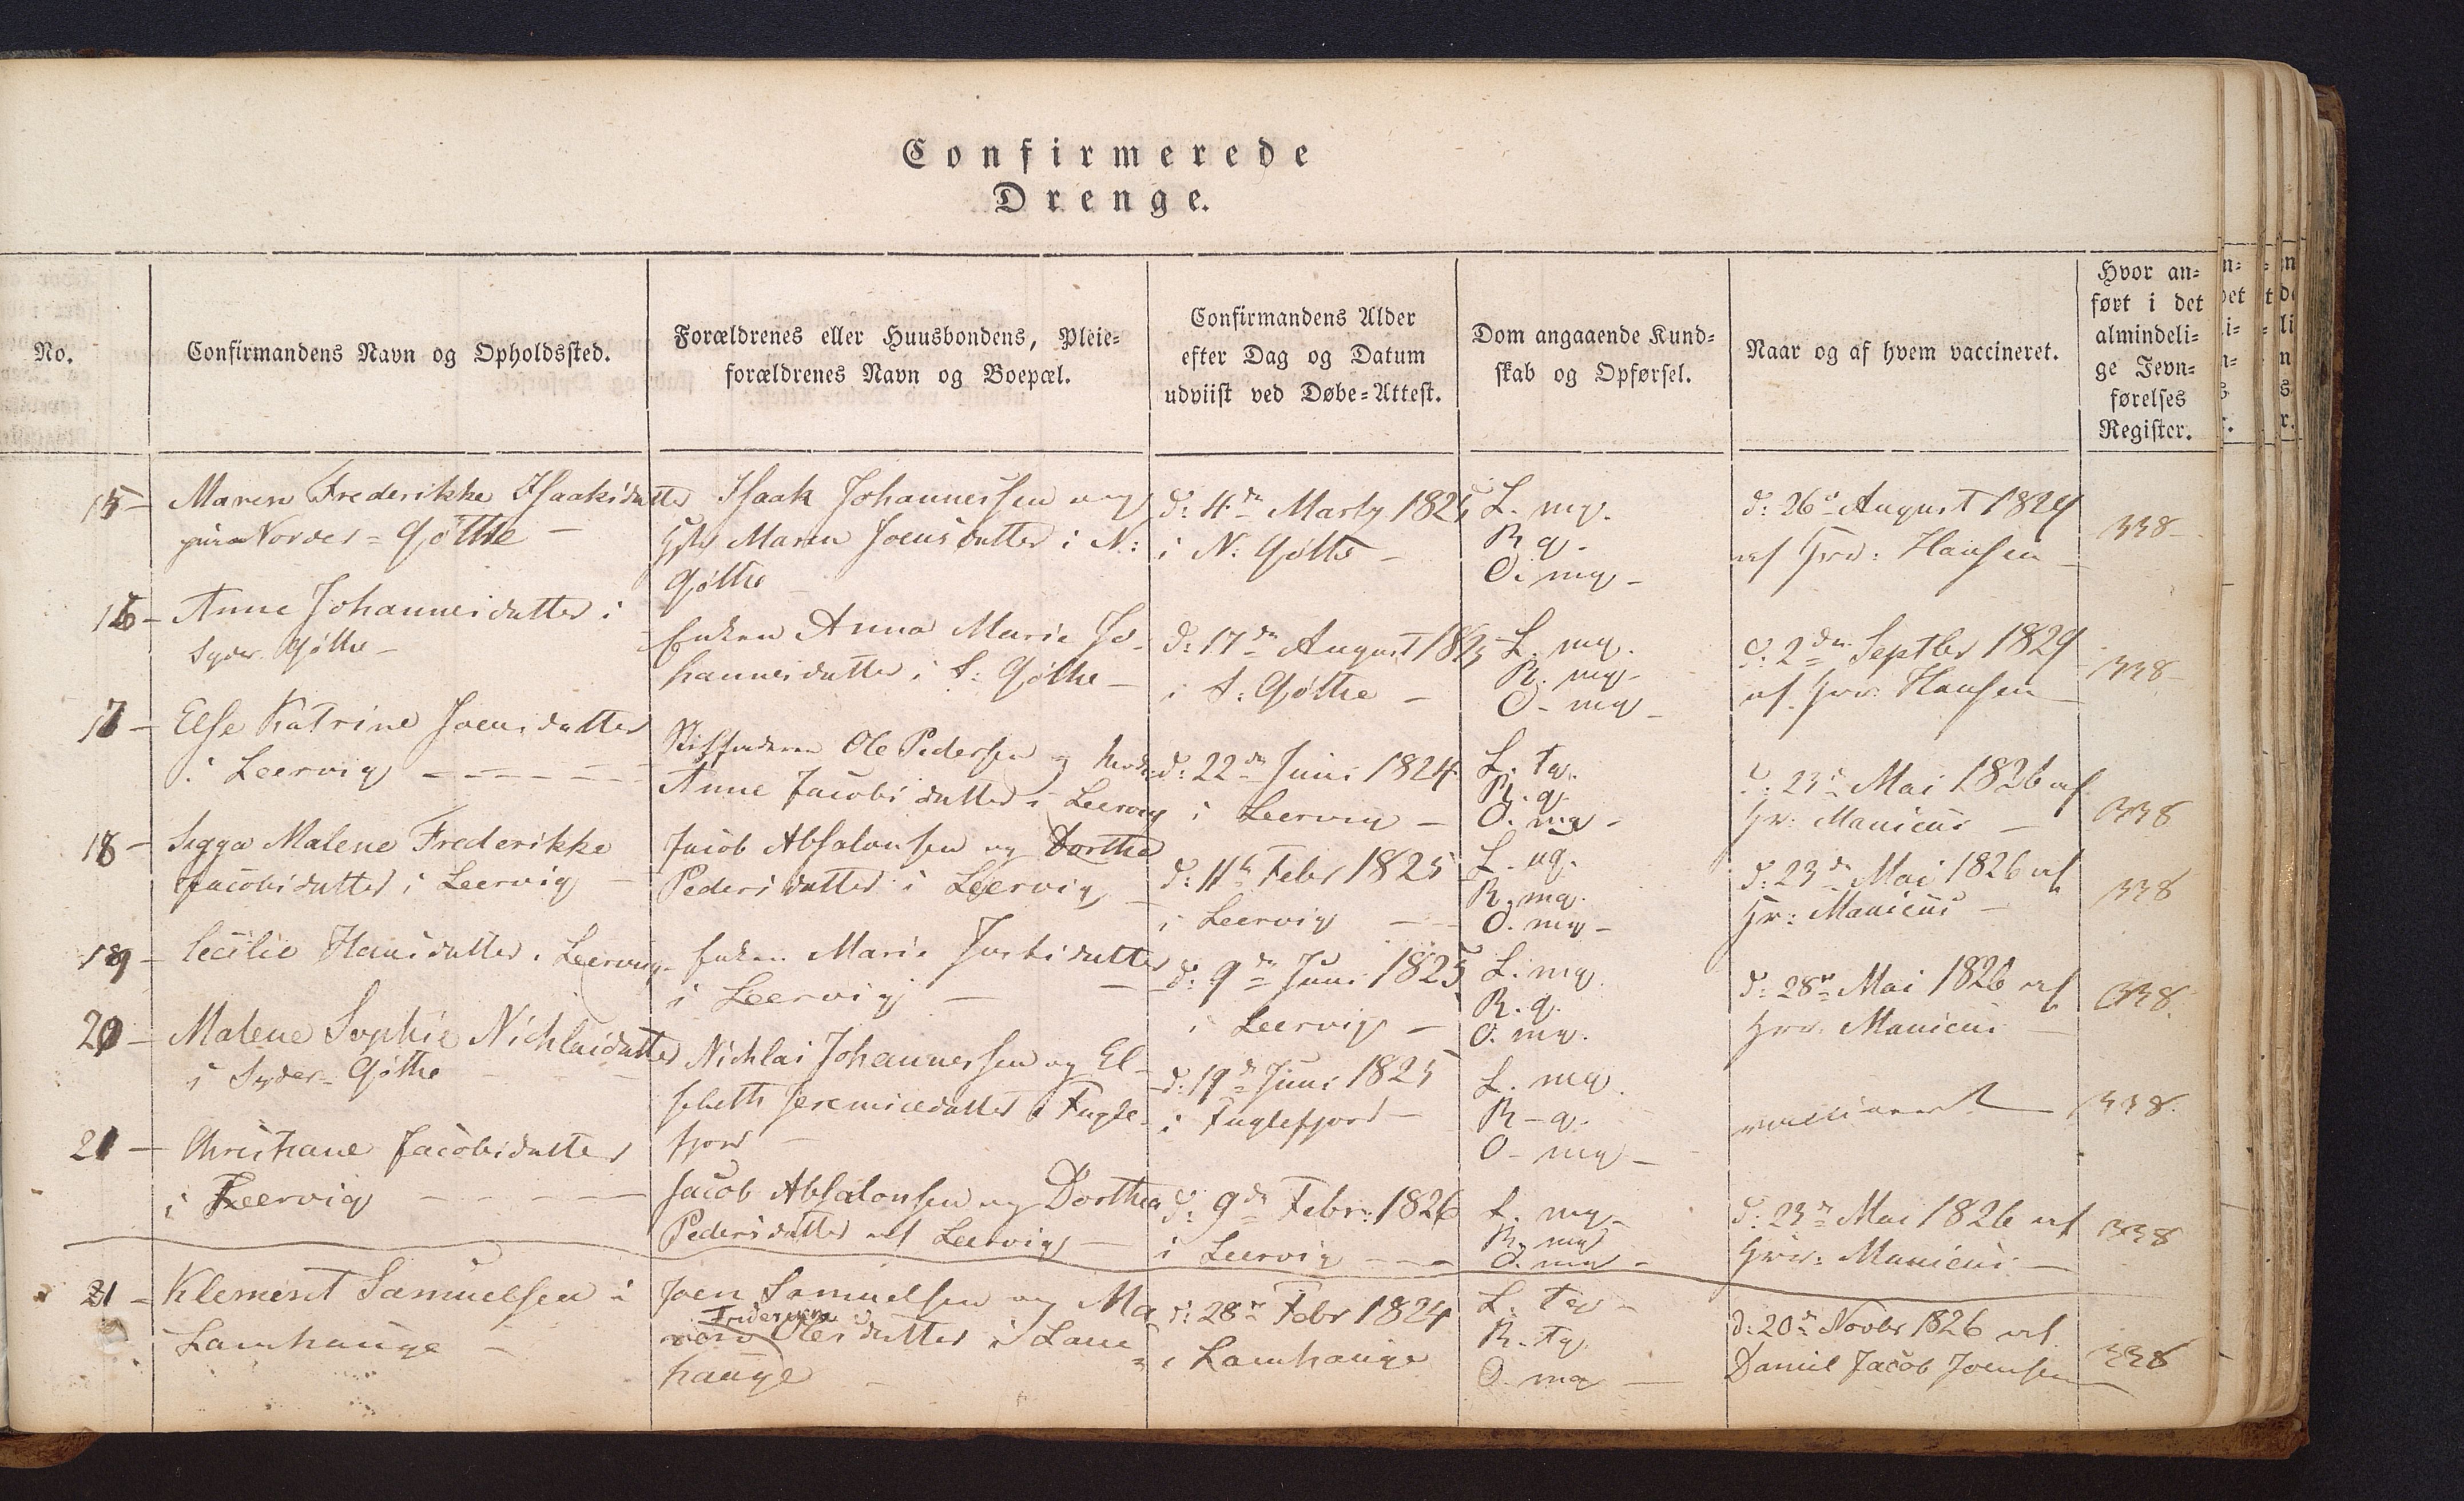 Confirmerede
Drenge.
No.
Confirmandens Navn og Opholdssted.
Forældrenes eller Huusbondens, Pleie=
forældrenes Navn og Boepæl.
Confirmandens Alder
efter Dag og Datum
udviist ved Døbe=Attest.
Dom angaaende Kund=
skab og Opførsel.
Naar og af hvem vaccineret.
Hvor an=
ført i det
almindeli=
ge Jevn=
førelses
Register.
15 -
Maren Frederikke Isaaksdatter
Norder = Gøthe -
Isaak Johannessen og
Maren Joensdatter i N:
Gøthe
d: 4de Marty 1825
i N: Gøthe -
L. mg.
R g.
O. mg -
d: 26de August 1829
af Hrr: Hansen
338
16 -
Anne Johannesdatter i
Syder Gøthe -
Enken Anna Marie Jo-
hannesdatter i S: Gøthe -
d: 17de August 1825
i S: Gøthe -
L. mg.
R. mg -
O - mg -
d: 2den Septbr 1829
af Hrr: Hansen
338
17 -
Else Katrine Joensdatter
i Leervig - - - -
Stiffaderen Ole Pedersen og Moder
Anne Jacobsdatter i Leervig
d: 22de Juni 1824
i Leervig -
L. tg.
R. g.
O. mg -
d: 23de Mai 1826 af
Hr: Manicus -
338
18 -
Sigga Malene Frederikke
Jacobsdatter i Leervig -
Jacob Absalonsen og Dorthea
Pedersdatter i Leervig -
d: 11te Febr 1825
i Leervig - -
L. ug.
R. mg.
O. mg -
d: 23de Mai 1826 af
Hr: Manicus -
338
19 -
Cecilie Hansdatter i Leervig
Enken Marie Justsdatter
i Leervig - -
d: 9de Juni 1825
i Leervig -
L. mg.
R. g.
O. mg.
d: 28de Mai 1826 af
Hrr. Manicus -
338
20 -
Malene Sophie Nichlaisdatter
i Syder - Gøthe
Nichlai Johannessen og El-
sebeth Jeremiasdatter i Fugle-
fjord -
d: 19de Juni 1825
i Fuglefjord -
L. mg.
R - g.
O - mg -
vaccineret
338.
21 -
Christiane Jacobsdatter
i Leervig - - - -
Jacob Absalonsen og Dorthea
Pedersdatter af Leervig -
d: 9de Febr: 1826
i Leervig - - -
L. mg -
R. mg
O. mg -
d: 23de Mai 1826 af
Hrr: Manicus -
338
21 -
Klement Samuelsen i
Lamhauge -
Joen Samuelsen og Ma
Olesdatter i Lam=
hauge -
d: 28de Febr 1824
i Lamhauge
L. tg -
R. tg.
O. mg -
d: 20de Novbr 1826 af
Daniel Jacob Joensen
338